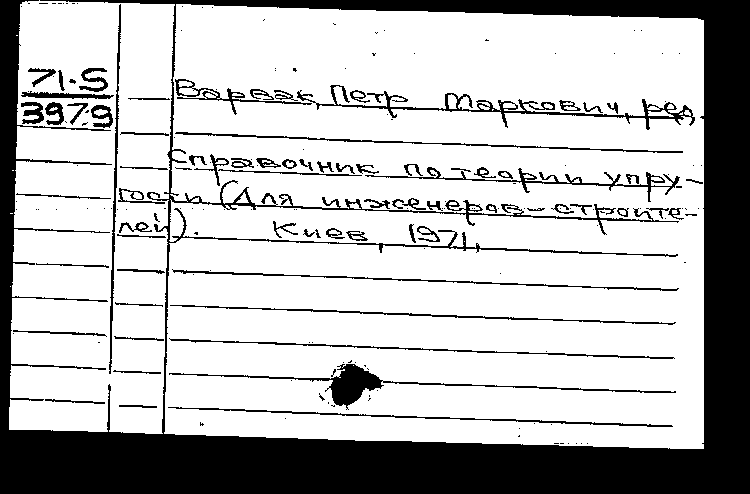 71-5
3979
Варвак, Петр Маркович, ред.
Справочник по теории упру-
гости (для инженеров-строите-
лей). Киев, 1971,